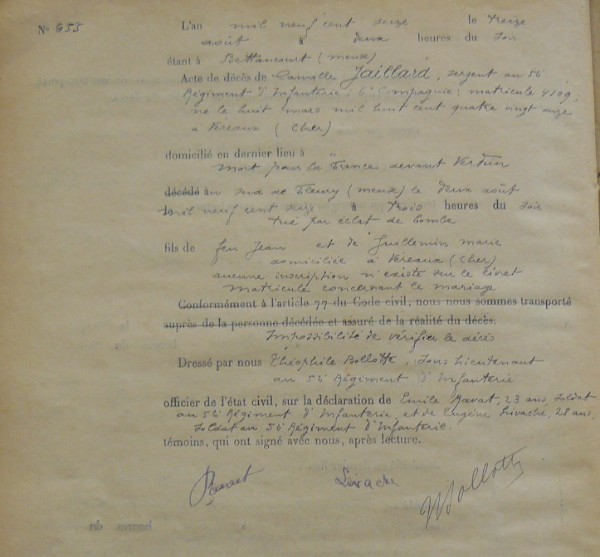 No 633
L'an mil neuf cent seize le treize
août à deux heures du soir
étant à Bettancourt (meuse)
Acte de décès de Camille Jaillard, sergent au 56
Régiment d'Infanterie, 6e Compagnie; matricule 4109;
né le huit mars mil huit cent quatre vingt onze
à Vereaux (Cher)
domicilié en dernier lieu à
mort pour la France devant Verdun
décédé au sud de Fleury (meuse) le deux août
mil neuf cent seize à trois heures du soir
tué par éclat de bombe
fils de feu Jean et de Guillemin marie
domiciliée à Vereaux (Cher)
aucune inscription n'existe sur le livret
matricule concernant le mariage
Conformément à l'article 77 du Code civil, nous nous sommes transporté
auprès de la personne décédée et assuré de la réalité du décès.
Impossibilité de vérifier le décès
Dressé par nous Théophile Bollotte, Sous Lieutenant
au 56 Régiment d'Infanterie
officier de l'état civil, sur la déclaration de Emile 23 ans, soldat
au 56 Régiment d'Infanterie, et de Eugène Livache, 28 ans,
soldat au 56 Régiment d'Infanterie.
témoins, qui ont signé avec nous, après lecture.
Livache Bollotte